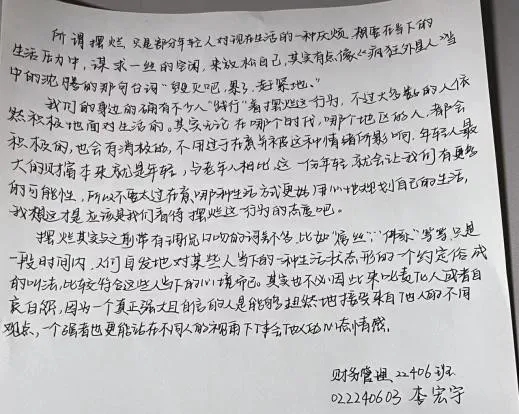 所谓摆烂，只是部分年轻人对现在生活的一种厌烦，想要在当下的
生活压力中，谋求一丝的空闲，来放松自己，其实有点像《疯狂外星人》当
中的沈腾的那句台词“毁灭吧，累了，赶紧地、”
我们的身边的确有不少人“践行”着摆烂这一行为，不过大多数的人依
然积极地面对生活的，其实无论在哪个时代，哪个地区的人，都会
积极的，也会有消极的，不用过于在意并被这种情绪所影响，年轻人最
大的财富本来就是年轻，与老年人相比，这一份年轻就会让我们有更多
的可能性，所以不要太过在意哪种生活方式更好，用心地规划自己的生活，
我想这才是应该是我们看待摆烂这一行为的态度吧。
摆烂其实与之前带有调侃口吻的词类似，比如“屌丝”，“佛系”等等，只是
一段时间内，人们自发地对某些人当下的一种生活状态，形成的一个约定俗成
的叫法，比较符合这些人当下的心境而已。其实也不必因此来叱责他人或者自
哀自怨，因为一个真正强大且自信的人是能够坦然地接受来自他人的不同
观点，一个强者也更能站在不同人的视角下体会他人的心态情感。
财务管理 22406班
022240603 李宏宇